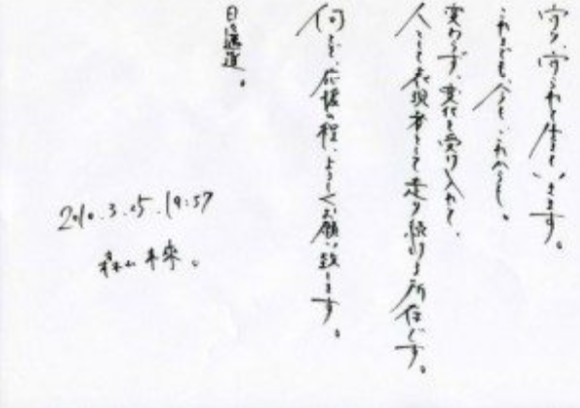 守り、守られて生きています。
これまでも、今も、これからも。
変わらず、変化を受け入れて、
人として表現者として走り続ける所存です。
何とぞ、応援の程、よろしくお願い致します。
日々邁進。
2010.3.05.19:57
森山 未來。